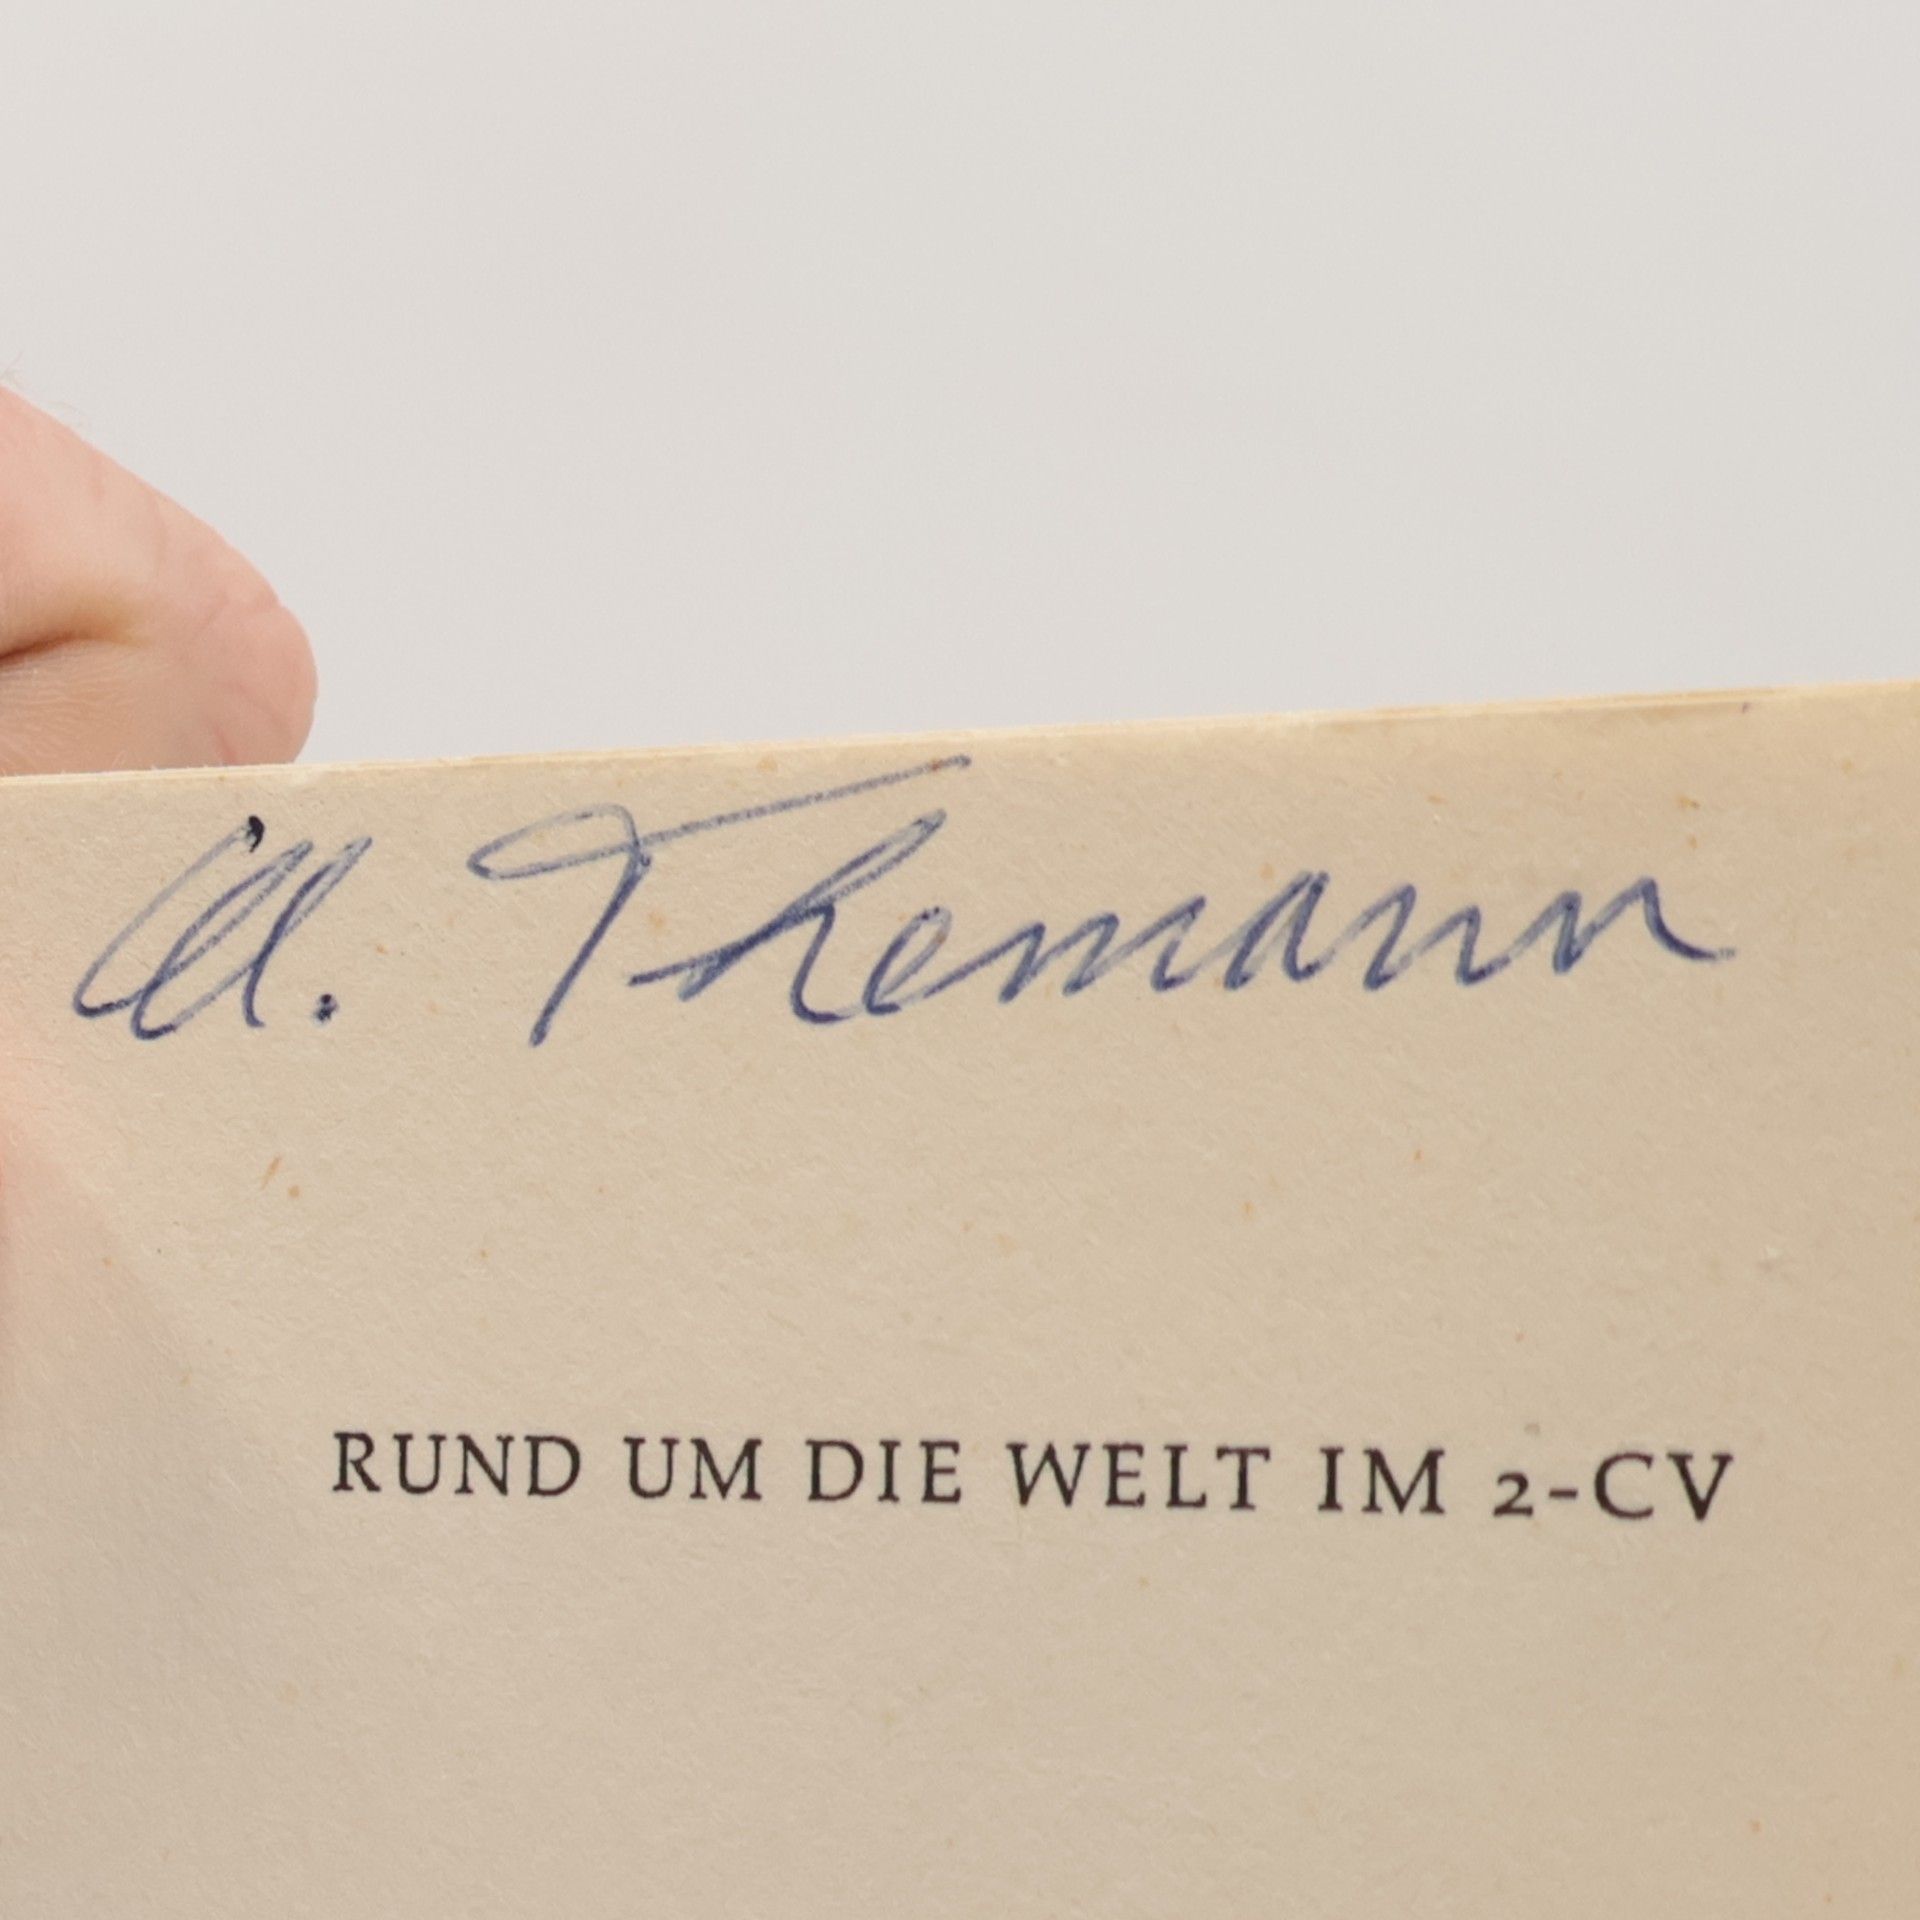 U. Themann
RUND UM DIE WELT IM 2-CV